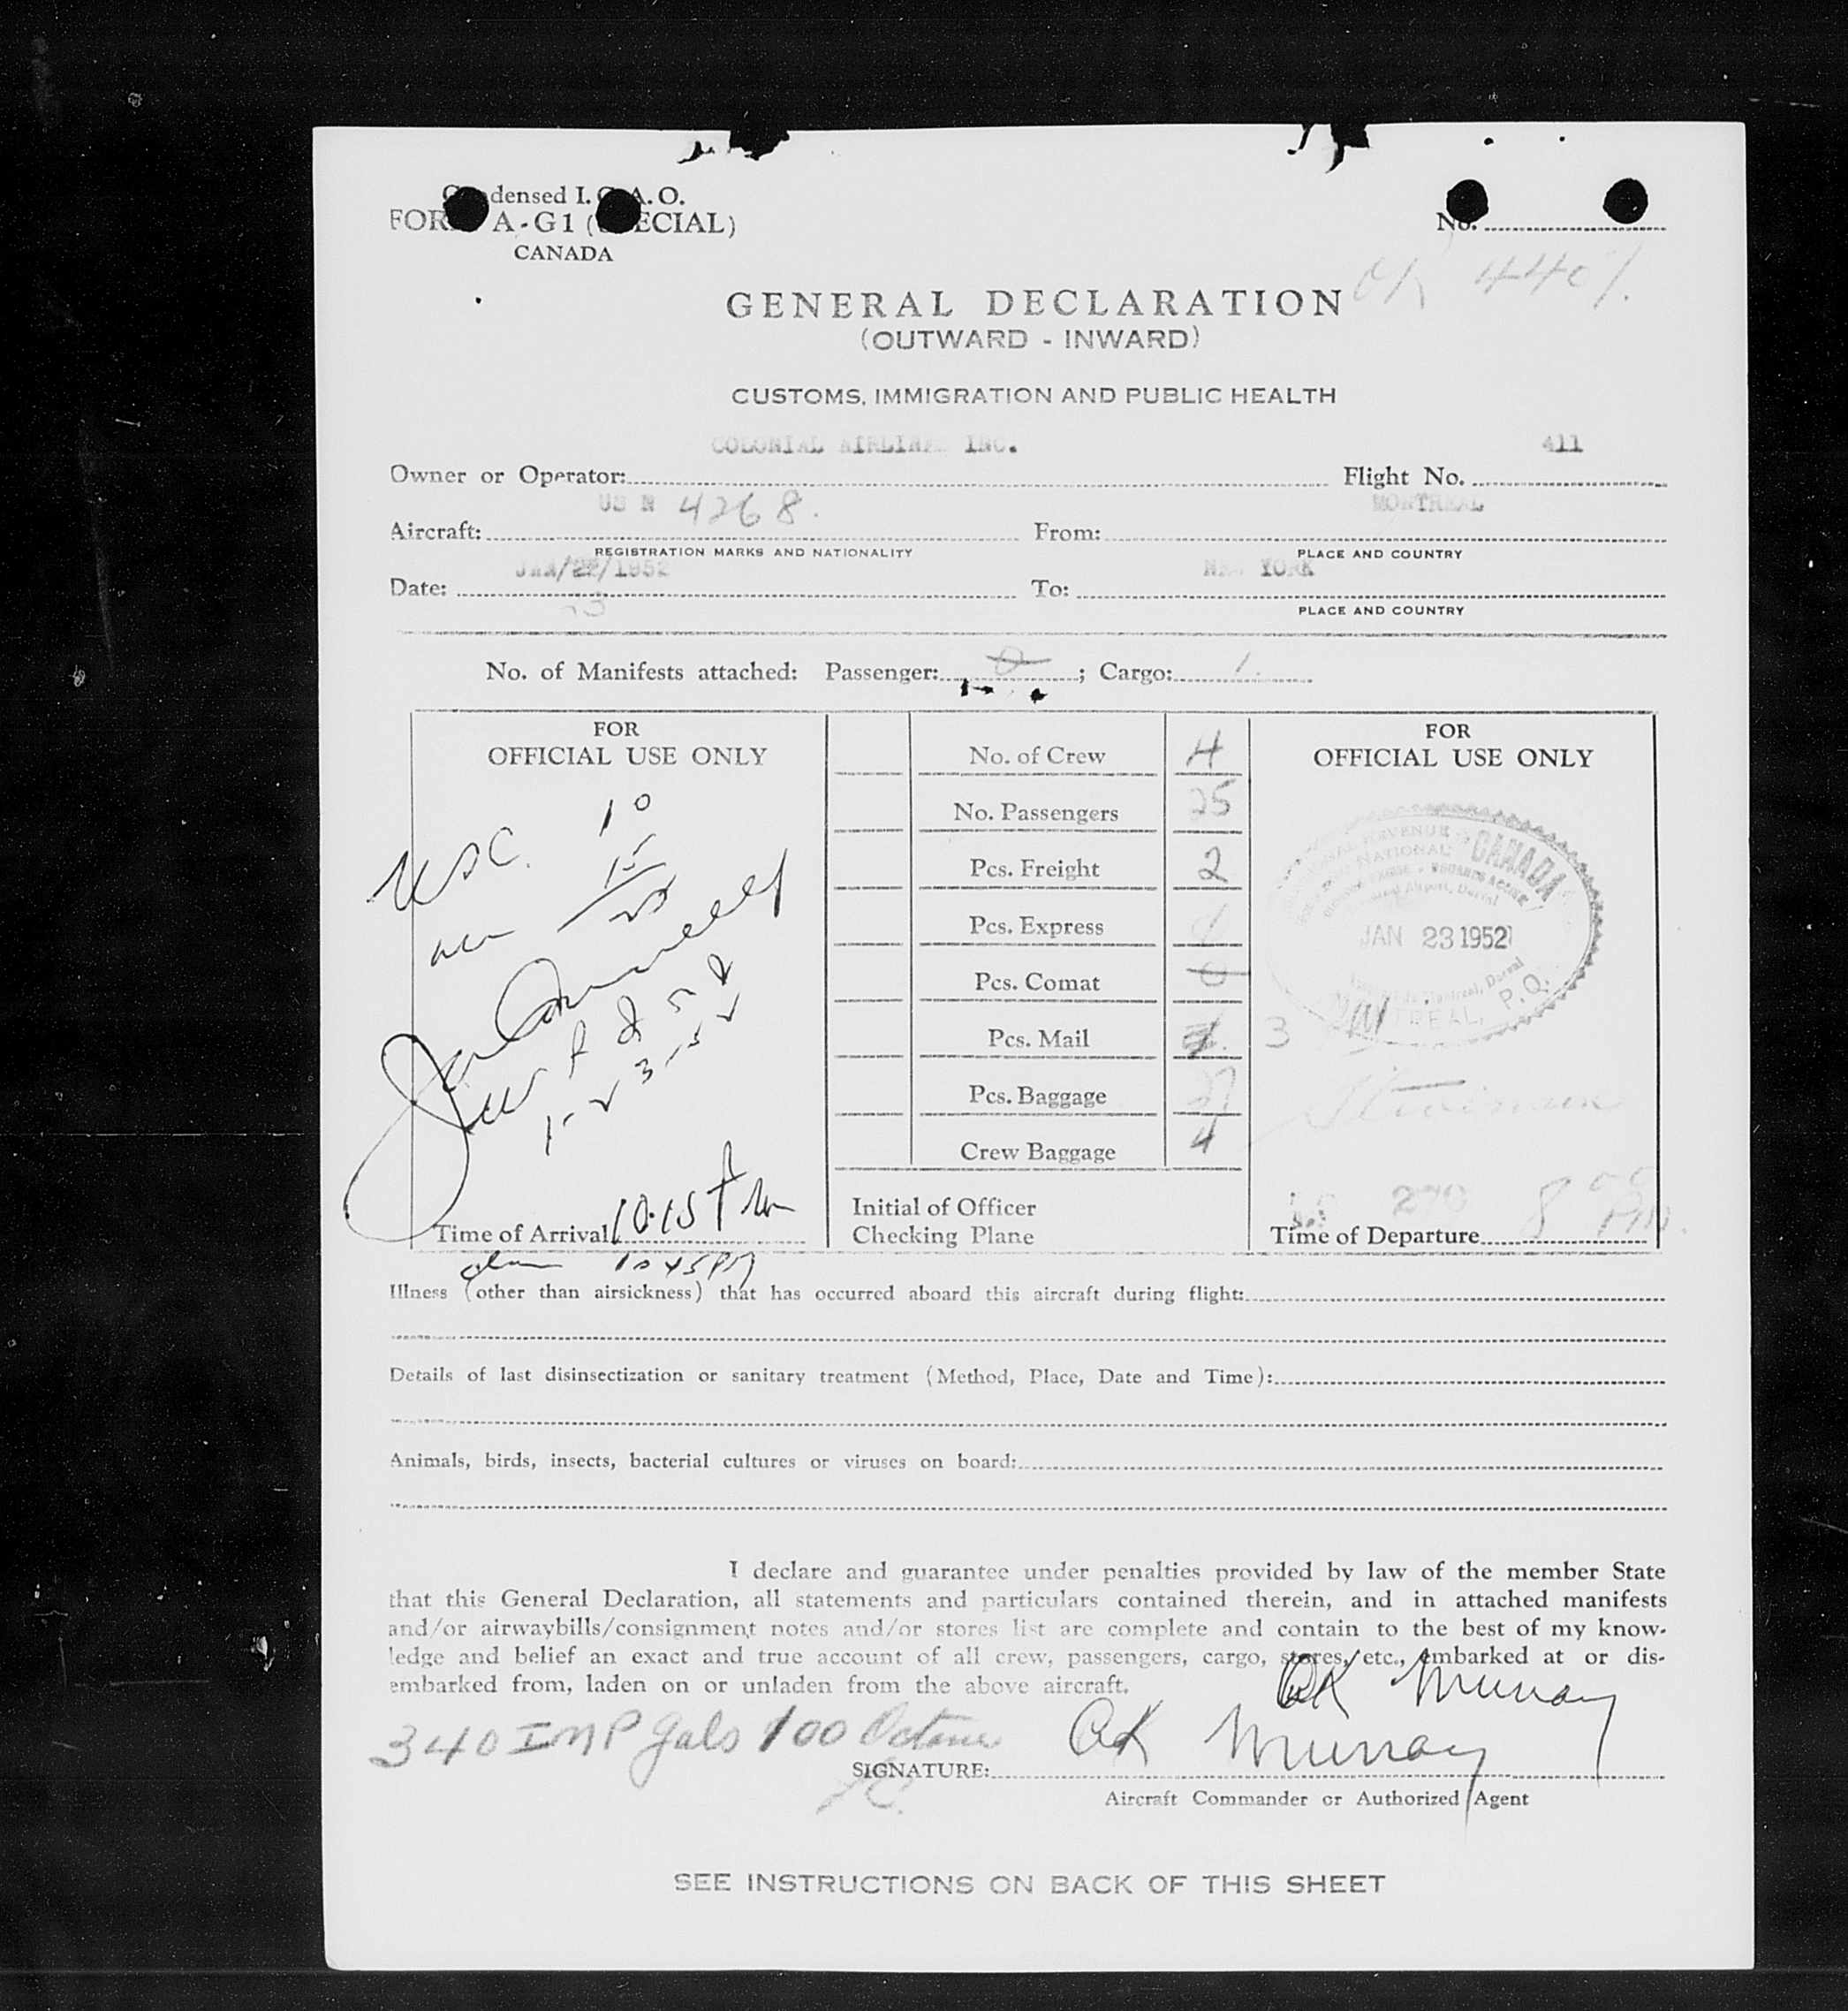 Condensed I.C.A.O.
FORM A-G1 (SPECIAL)
CANADA
No.
440
GENERAL DECLARATION
(OUTWARD - INWARD)
CUSTOMS, IMMIGRATION AND PUBLIC HEALTH
COLONIAL AIRLINE INC. 411
Owner or Operator: Flight No.
US N 4268. MONTREAL
Aircraft: From:
REGISTRATION MARKS AND NATIONALITY PLACE AND COUNTRY
JAN/22/1952 NEW YORK
Date: To:
23 PLACE AND COUNTRY
No. of Manifests attached: Passenger: 0 ; Cargo: 1.
FOR
OFFICIAL USE ONLY
USC. 10
15
25
1 - 2 3 - 5
Time of Arrival 10:15 PM
10 45 PM
No. of Crew 4
No. Passengers 25
Pcs. Freight 2
Pcs. Express
Pcs. Comat 0
Pcs. Mail 3
Pcs. Baggage 27
Crew Baggage 4
Initial of Officer
Checking Plane
FOR
OFFICIAL USE ONLY
CANADA
JAN 23 1952
MONTREAL, P.Q.
270 8 00 PM.
Time of Departure
Illness (other than airsickness) that has occurred aboard this aircraft during flight:
Details of last disinsectization or sanitary treatment (Method, Place, Date and Time):
Animals, birds, insects, bacterial cultures or viruses on board:
I declare and guarantee under penalties provided by law of the member State
that this General Declaration, all statements and particulars contained therein, and in attached manifests
and/or airwaybills/consignment notes and/or stores list are complete and contain to the best of my know-
ledge and belief an exact and true account of all crew, passengers, cargo, stores, etc., embarked at or dis-
embarked from, laden on or unladen from the above aircraft.
OK Murray
340 IMP Gals 100 Octane OK Murray
SIGNATURE:
Aircraft Commander or Authorized Agent
SEE INSTRUCTIONS ON BACK OF THIS SHEET